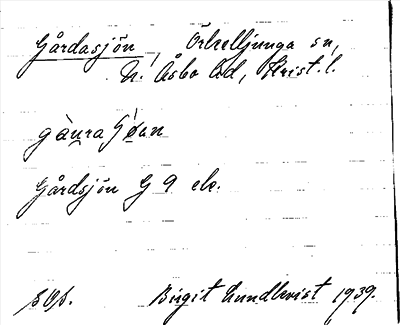 Gårdasjön, Örkelljunga sn,
N. Åsbo hd, Krist. l.
Gårdsjön G 9 elv.
Birgit Lundkvist 1939.